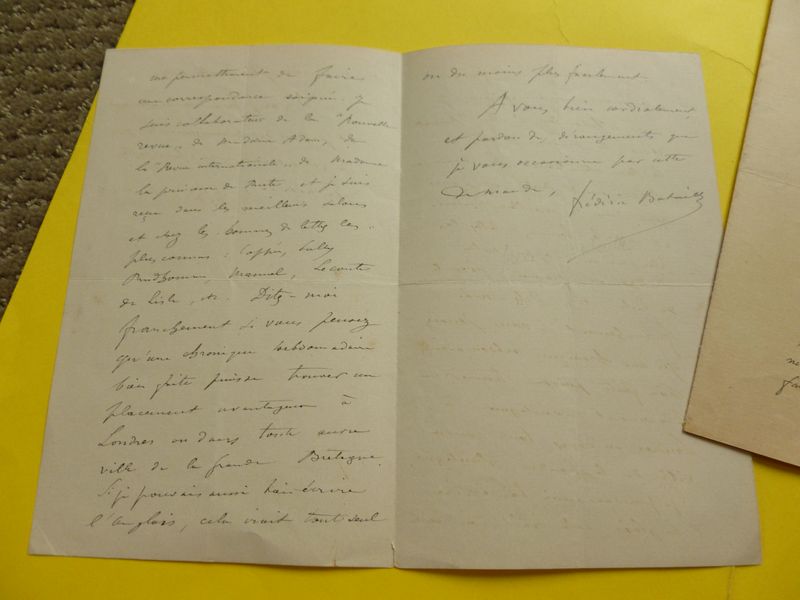 me permettraient de faire
une correspondance soignée. Je
suis collaborateur de la "Nouvelle
revue" de Madame Adam, de
la "Revue internationale" de Madame
la princesse de , et je suis
reçu dans les meilleurs salons
et chez les hommes de lettres les
plus connus : Coppée, Sully
Prudhomme, Manuel, Leconte
de Lisle, etc. Dites-moi
franchement si vous pensez
qu'une chronique hebdomadaire
bien faite puisse trouver un
placement avantageux à
Londres ou dans toute autre
ville de la Grande Bretagne.
Si je pouvais aussi bien écrire
l'anglais, cela irait tout seul
ou du moins plus facilement.
A vous bien cordialement
et pardon de dérangements que
je vous occasionne par cette
demande,
frédéric Bataille